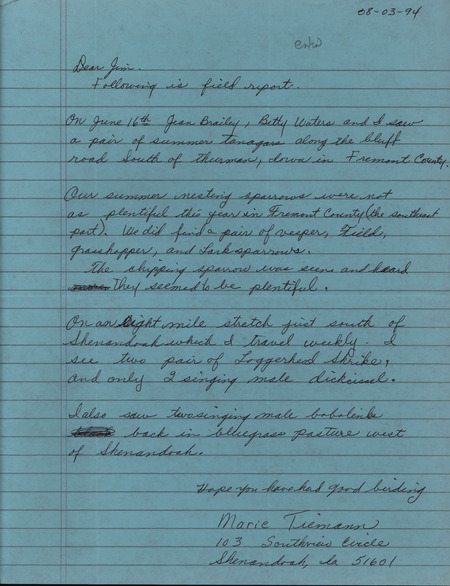 08-03-94
Dear Jim.
Following is field report.
On June 16th Jean Braley, Betty Waters and I saw
a pair of summer tanagars along the bluff
road South of Thurman, Iowa in Fremont County.
Our summer nesting sparrows were not
as plentiful this year in Fremont County (the southeast
part). We did find a pair of vesper, Field,
grasshopper, and Lark sparrows.
The chipping sparrow was seen and heard
They seemed to be plentiful.
On an eight mile stretch just south of
Shenandoah which I travel weekly. I
see two pair of Loggerhead Shrike,
and only 2 singing male dickcissel.
I also saw two singing male bobolinks
back in bluegrass pasture west
of Shenandoah.
Hope you have had good birding
Marie Tiemann
103 Southview Circle
Shenandoah, Ia 51601